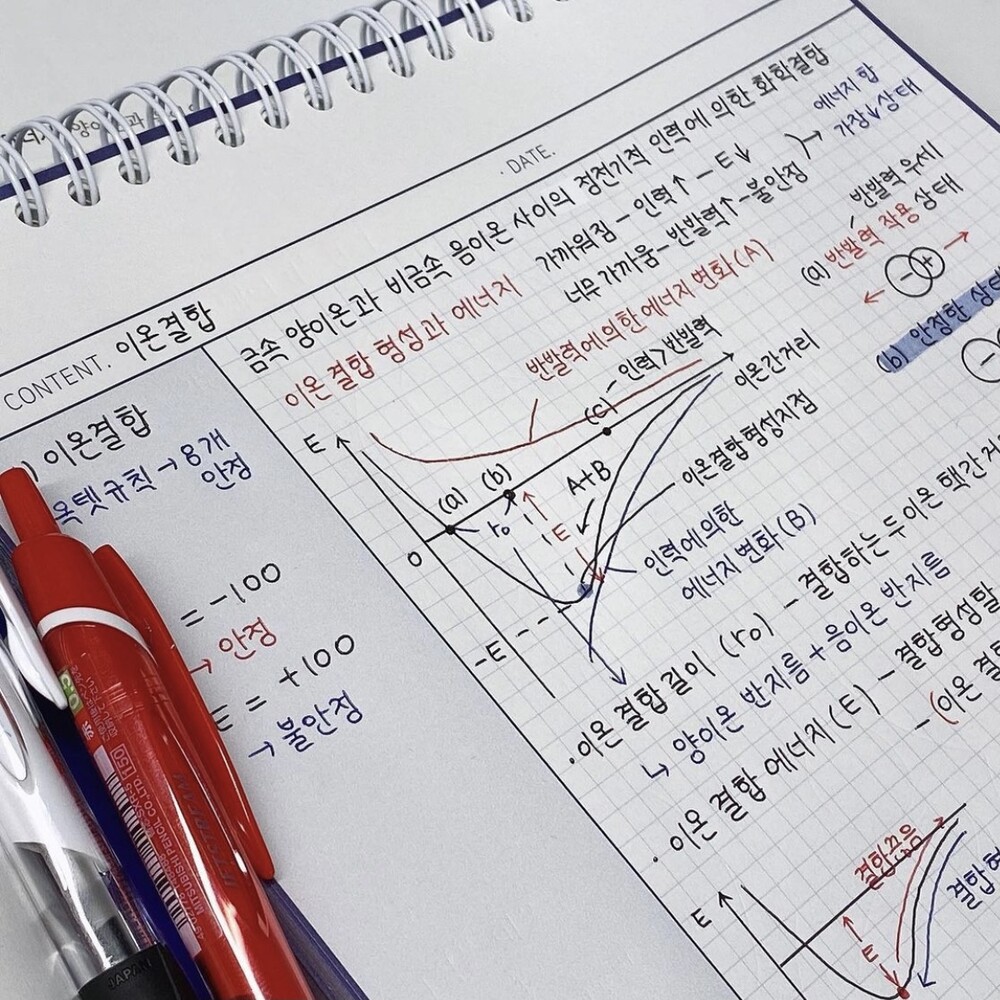 DATE.
CONTENT. 이온결합
이온결합
옥텟규칙 → 8개
안정
= -100
→ 안정
E = +100
→ 불안정
금속 양이온과 비금속 음이온 사이의 정전기적 인력에 의한 화학결합
이온 결합 형성과 에너지
가까워짐 - 인력↑ - E↓
너무 가까움 - 반발력↑ - 불안정
→ 에너지 합
가장↓ 상태
반발력에 의한 에너지 변화(A)
인력>반발력
이온간 거리
E
(a)
(b)
(c)
0
r₀
E
A+B
이온결합 형성지점
인력에 의한
에너지 변화(B)
-E
반발력 우세
(a) 반발력 작용 상태
- +
(b) 안정한 상태
-
· 이온 결합 길이 (r₀) - 결합하는 두 이온 핵간 거
↳ 양이온 반지름 + 음이온 반지름
· 이온 결합 에너지 (E) - 결합형성할
- (이온 결
E
결합끊음
E
결합
MITSUBISHI PENCIL CO.,LTD
150
JAPAN